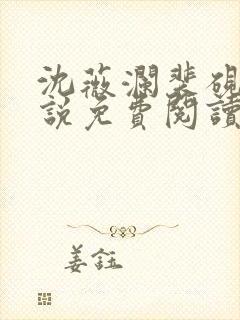 沈薇瀾裴硯
說免費閱讀
姜鈺